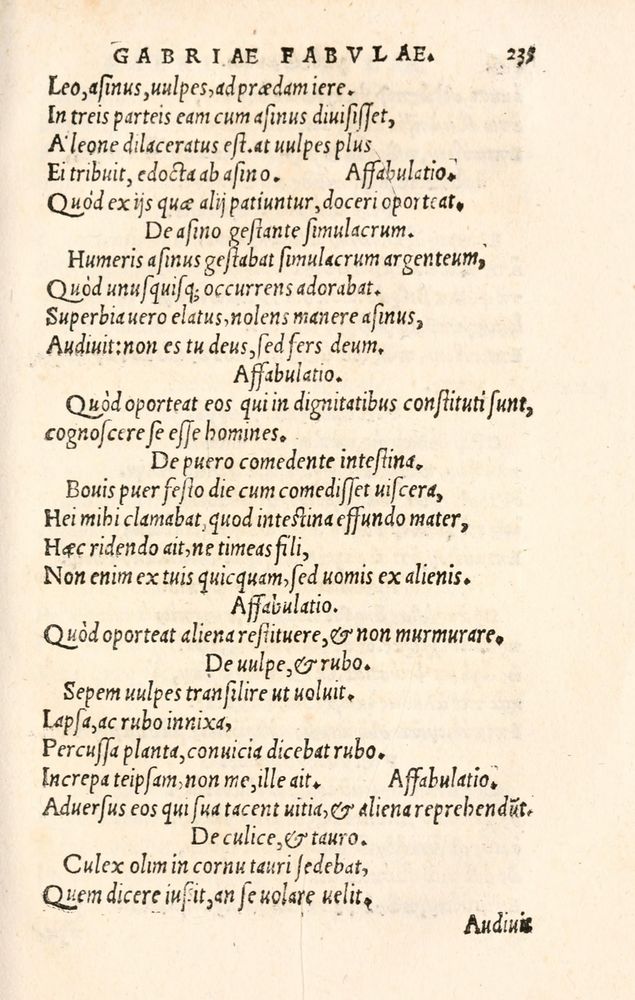 GABRIAE FABVLAE. 235
Leo, asinus, uulpes, ad prædam iere.
In treis parteis eam cum asinus diuisisset,
A' leone dilaceratus est. at uulpes plus
Ei tribuit, edocta ab asino. Affabulatio.
Quòd ex ijs quæ alij patiuntur, doceri oporteat.
De asino gestante simulacrum.
Humeris asinus gestabat simulacrum argenteum,
Quòd unusquisq; occurrens adorabat.
Superbia uero elatus, nolens manere asinus,
Audiuit: non es tu deus, sed fers deum.
Affabulatio.
Quòd oporteat eos qui in dignitatibus constituti sunt,
cognoscere se esse homines.
De puero comedente intestina.
Bouis puer festo die cum comedisset uiscera,
Hei mihi clamabat, quod intestina effundo mater,
Hæc ridendo ait, ne timeas fili,
Non enim ex tuis quicquam, sed uomis ex alienis.
Affabulatio.
Quòd oporteat aliena restituere, & non murmurare.
De uulpe, & rubo.
Sepem uulpes transilire ut uoluit.
Lapsa, ac rubo innixa,
Percussa planta, conuicia dicebat rubo.
Increpa teipsam, non me, ille ait. Affabulatio.
Aduersus eos qui sua tacent uitia, & aliena reprehendūt.
De culice, & tauro.
Culex olim in cornu tauri sedebat,
Quem dicere iussit, an se uolare uelit.
Audiuis